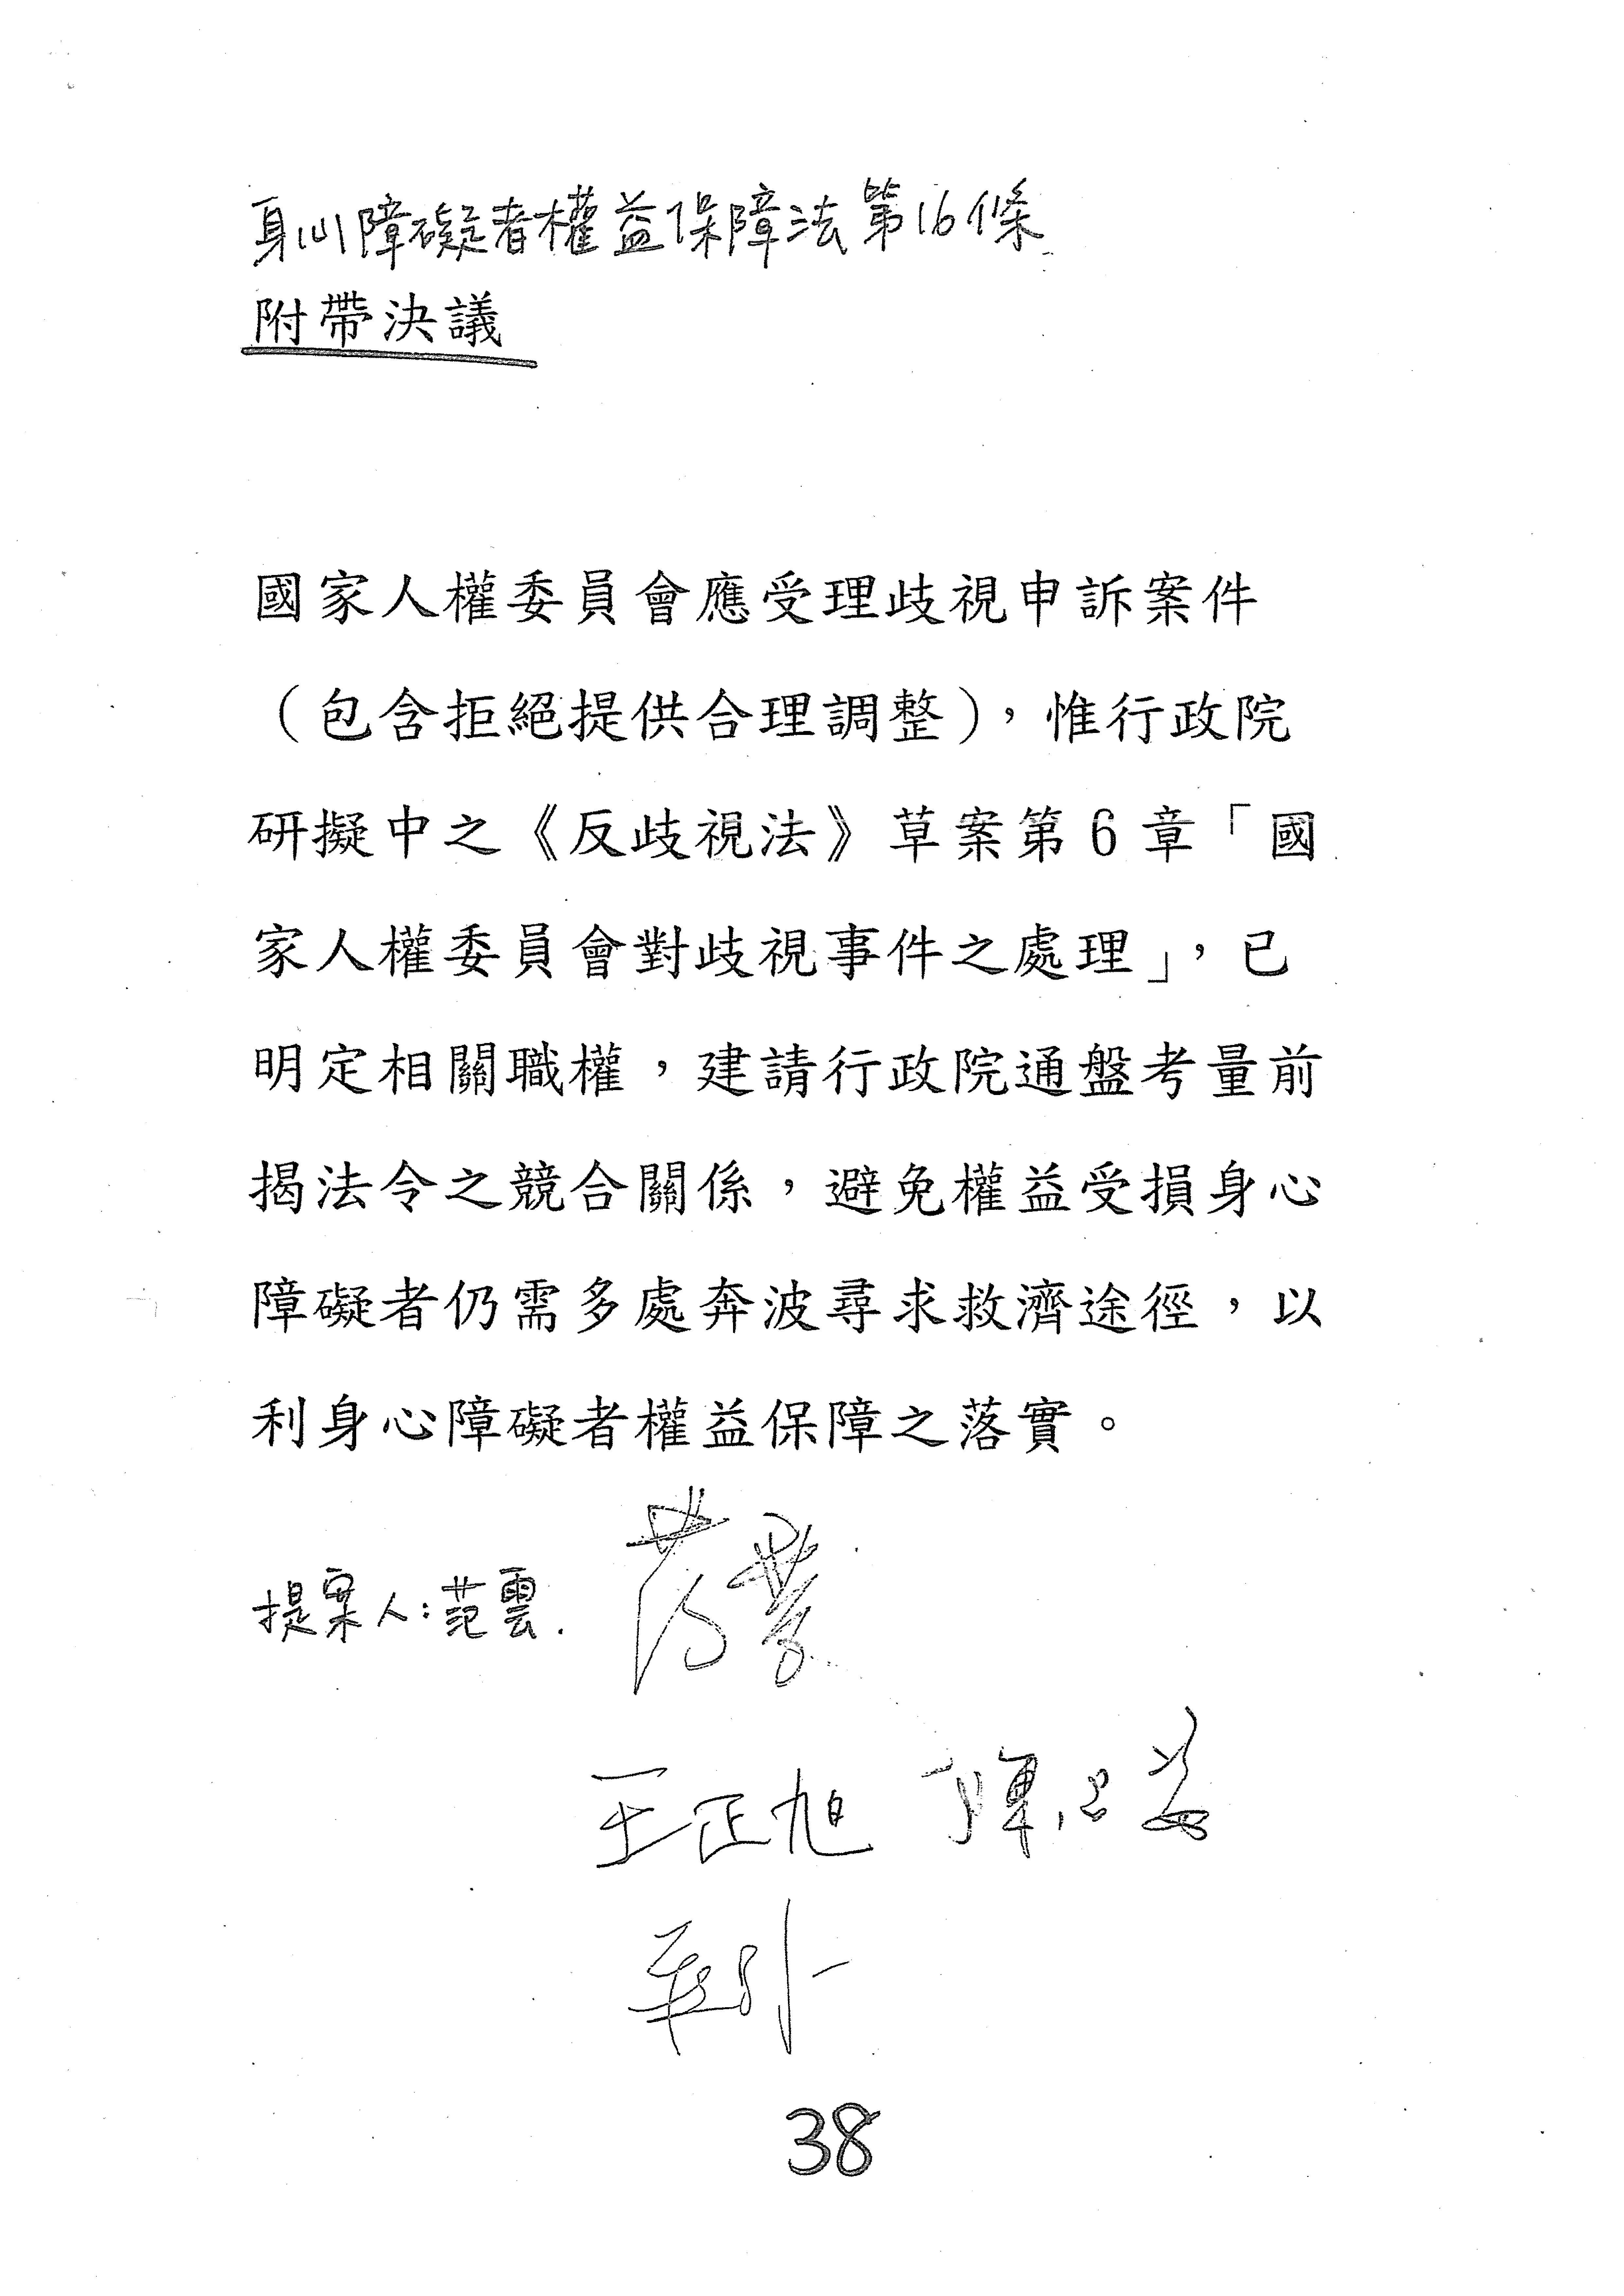 身心障礙者權益保障法第16條
附帶決議
國家人權委員會應受理歧視申訴案件
（包含拒絕提供合理調整），惟行政院
研擬中之《反歧視法》草案第6章「國
家人權委員會對歧視事件之處理」，已
明定相關職權，建請行政院通盤考量前
揭法令之競合關係，避免權益受損身心
障礙者仍需多處奔波尋求救濟途徑，以
利身心障礙者權益保障之落實。
提案人：范雲.
王正旭
38